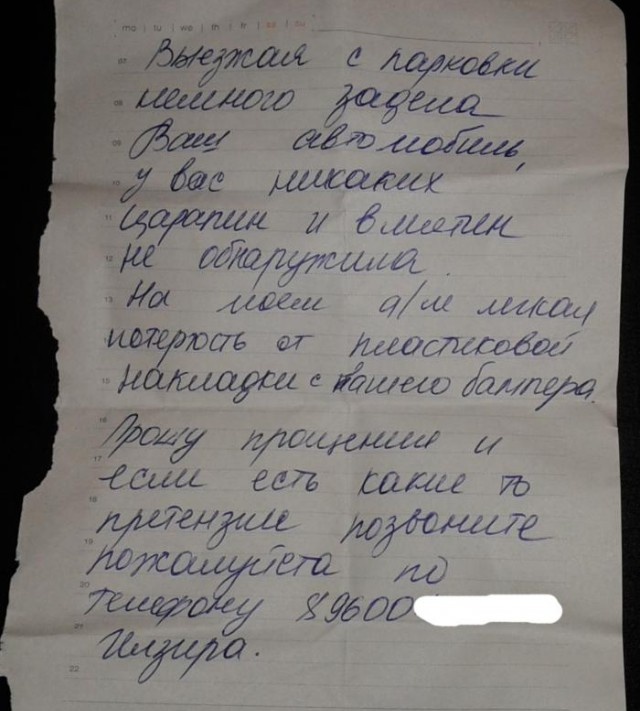 mo | tu | we | th | fr | sa | su
07 Выезжая с парковки
08 немного задела
09 Ваш автомобиль,
10 у вас никаких
11 царапин и вмятин
12 не обнаружила.
13 На моем а/м легкая
потертость от пластиковой
15 накладки с Вашего бампера.
16 Прошу прощения и
17 если есть какие то
18 претензии позвоните
19 пожалуйста по
20 телефону 89600
21 Илзира.
22